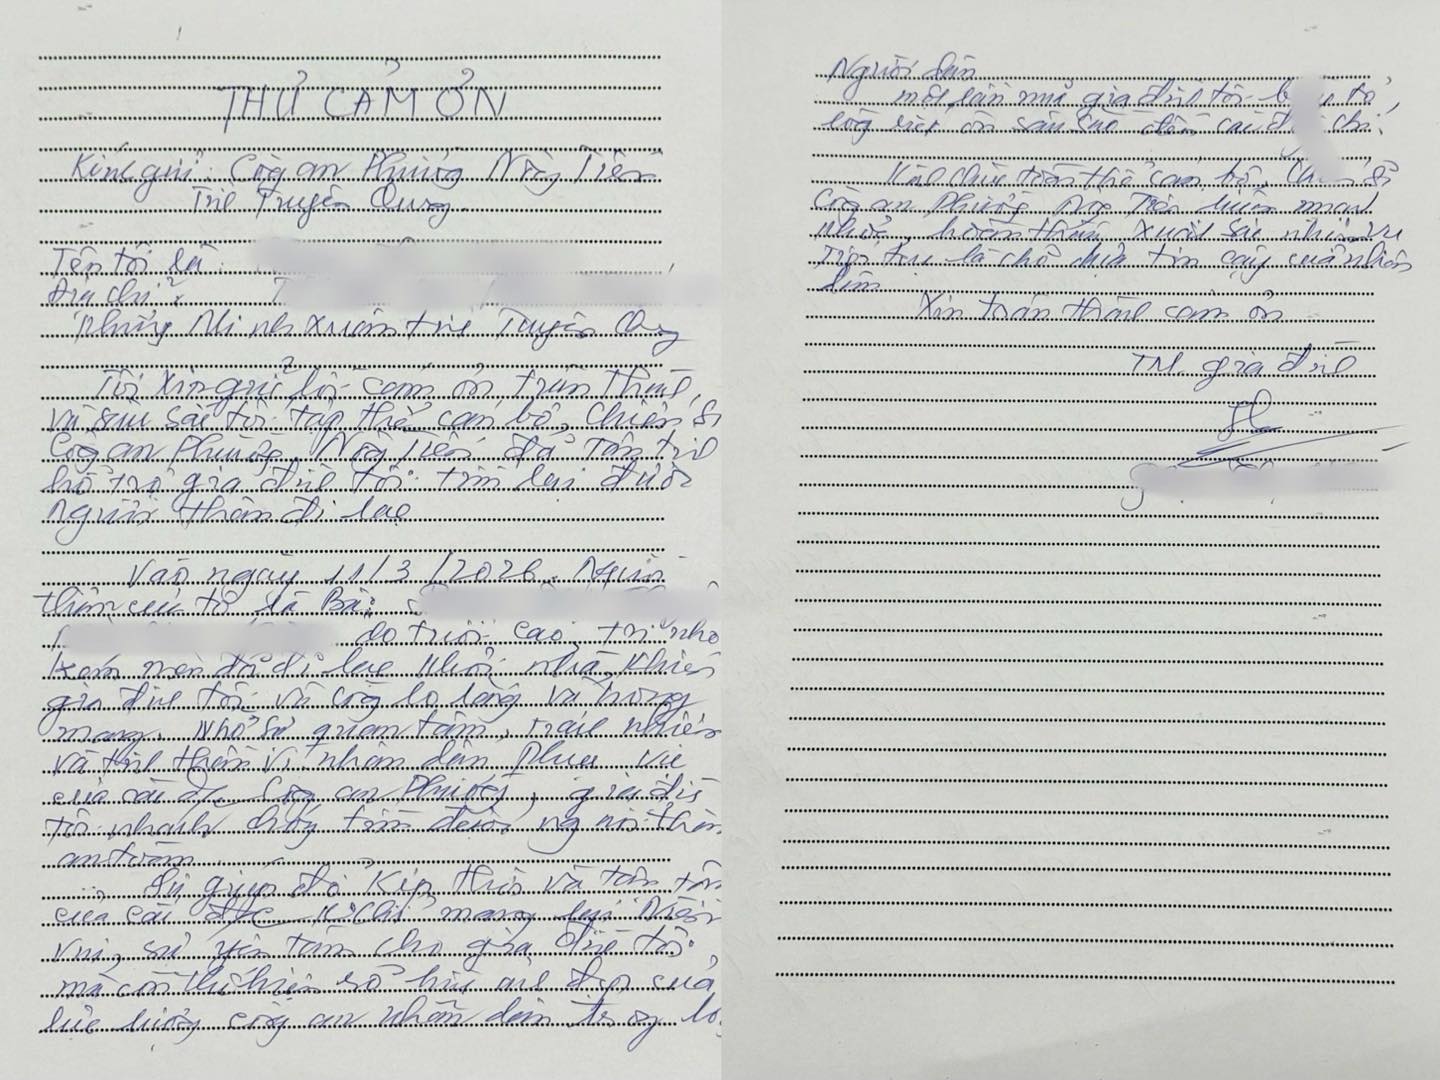 THƯ CẢM ƠN
Kính gửi: Công an Phường Nông Tiến
Tỉnh Tuyên Quang
Tên tôi là:
Địa chỉ:
Phường Minh Xuân tỉnh Tuyên Quang
Tôi xin gửi lời cảm ơn trân thành
và sâu sắc tới tập thể cán bộ, chiến sĩ
Công an Phường Nông Tiến đã tận tình
hỗ trợ gia đình tôi tìm lại được
người thân đi lạc
Vào ngày 11/3/2026. Người
thân của tôi là Bà:
do tuổi cao, trí nhớ
kém nên đã đi lạc khỏi nhà, khiến
gia đình tôi vô cùng lo lắng và hoang
mang. Nhờ sự quan tâm, trách nhiệm
và tinh thần vì nhân dân phục vụ
của các đ/c Công an Phường, gia đình
tôi nhanh chóng tìm được người thân
an toàn
Sự giúp đỡ kịp thời và tận tâm
của các đ/c k chỉ mang lại niềm
vui, sự yên tâm cho gia đình tôi
mà còn thể hiện rõ hình ảnh đẹp của
lực lượng công an nhân dân trong lò
Người dân
một lần nữa gia đình tôi bày tỏ
lòng biết ơn sâu sắc đến các đ/c chí
Kính chúc tập thể cán bộ, chiến sĩ
Công an Phường Nông Tiến luôn mạnh
khỏe, hoàn thành xuất sắc nhiệm vụ
Tiếp tục là chỗ dựa tin cậy của nhân
dân
Xin trân thành cảm ơn
TM. gia đình